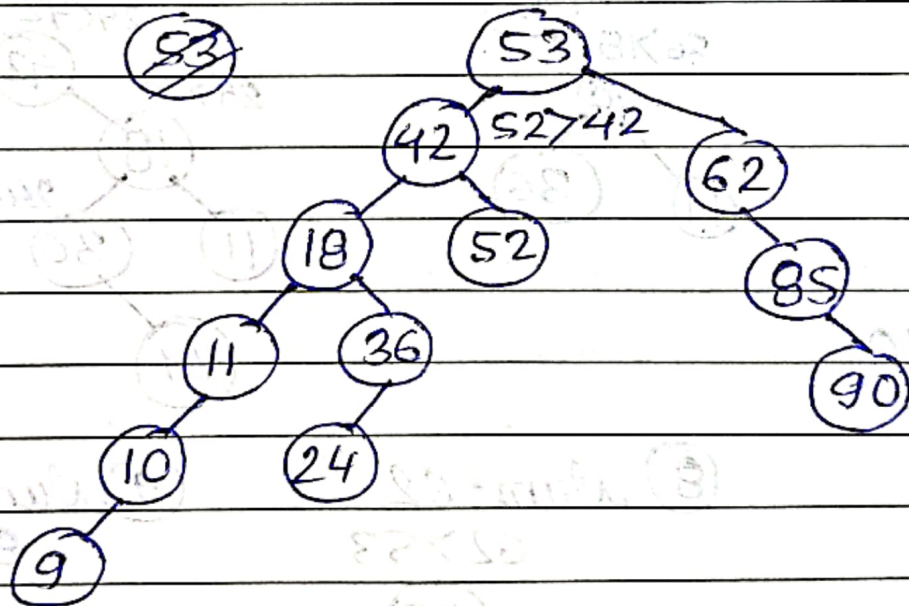 53 53
42 52>42 62
18 52 85
11 36 90
10 24
9